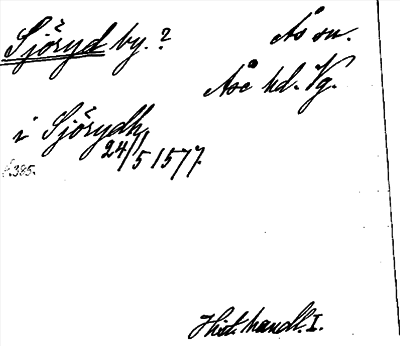 Sjöryd by.?
Ås sn.
Åse hd. Vg.
i Sjörydh
24/5 1577
s. 385.
Hist. handl. I.